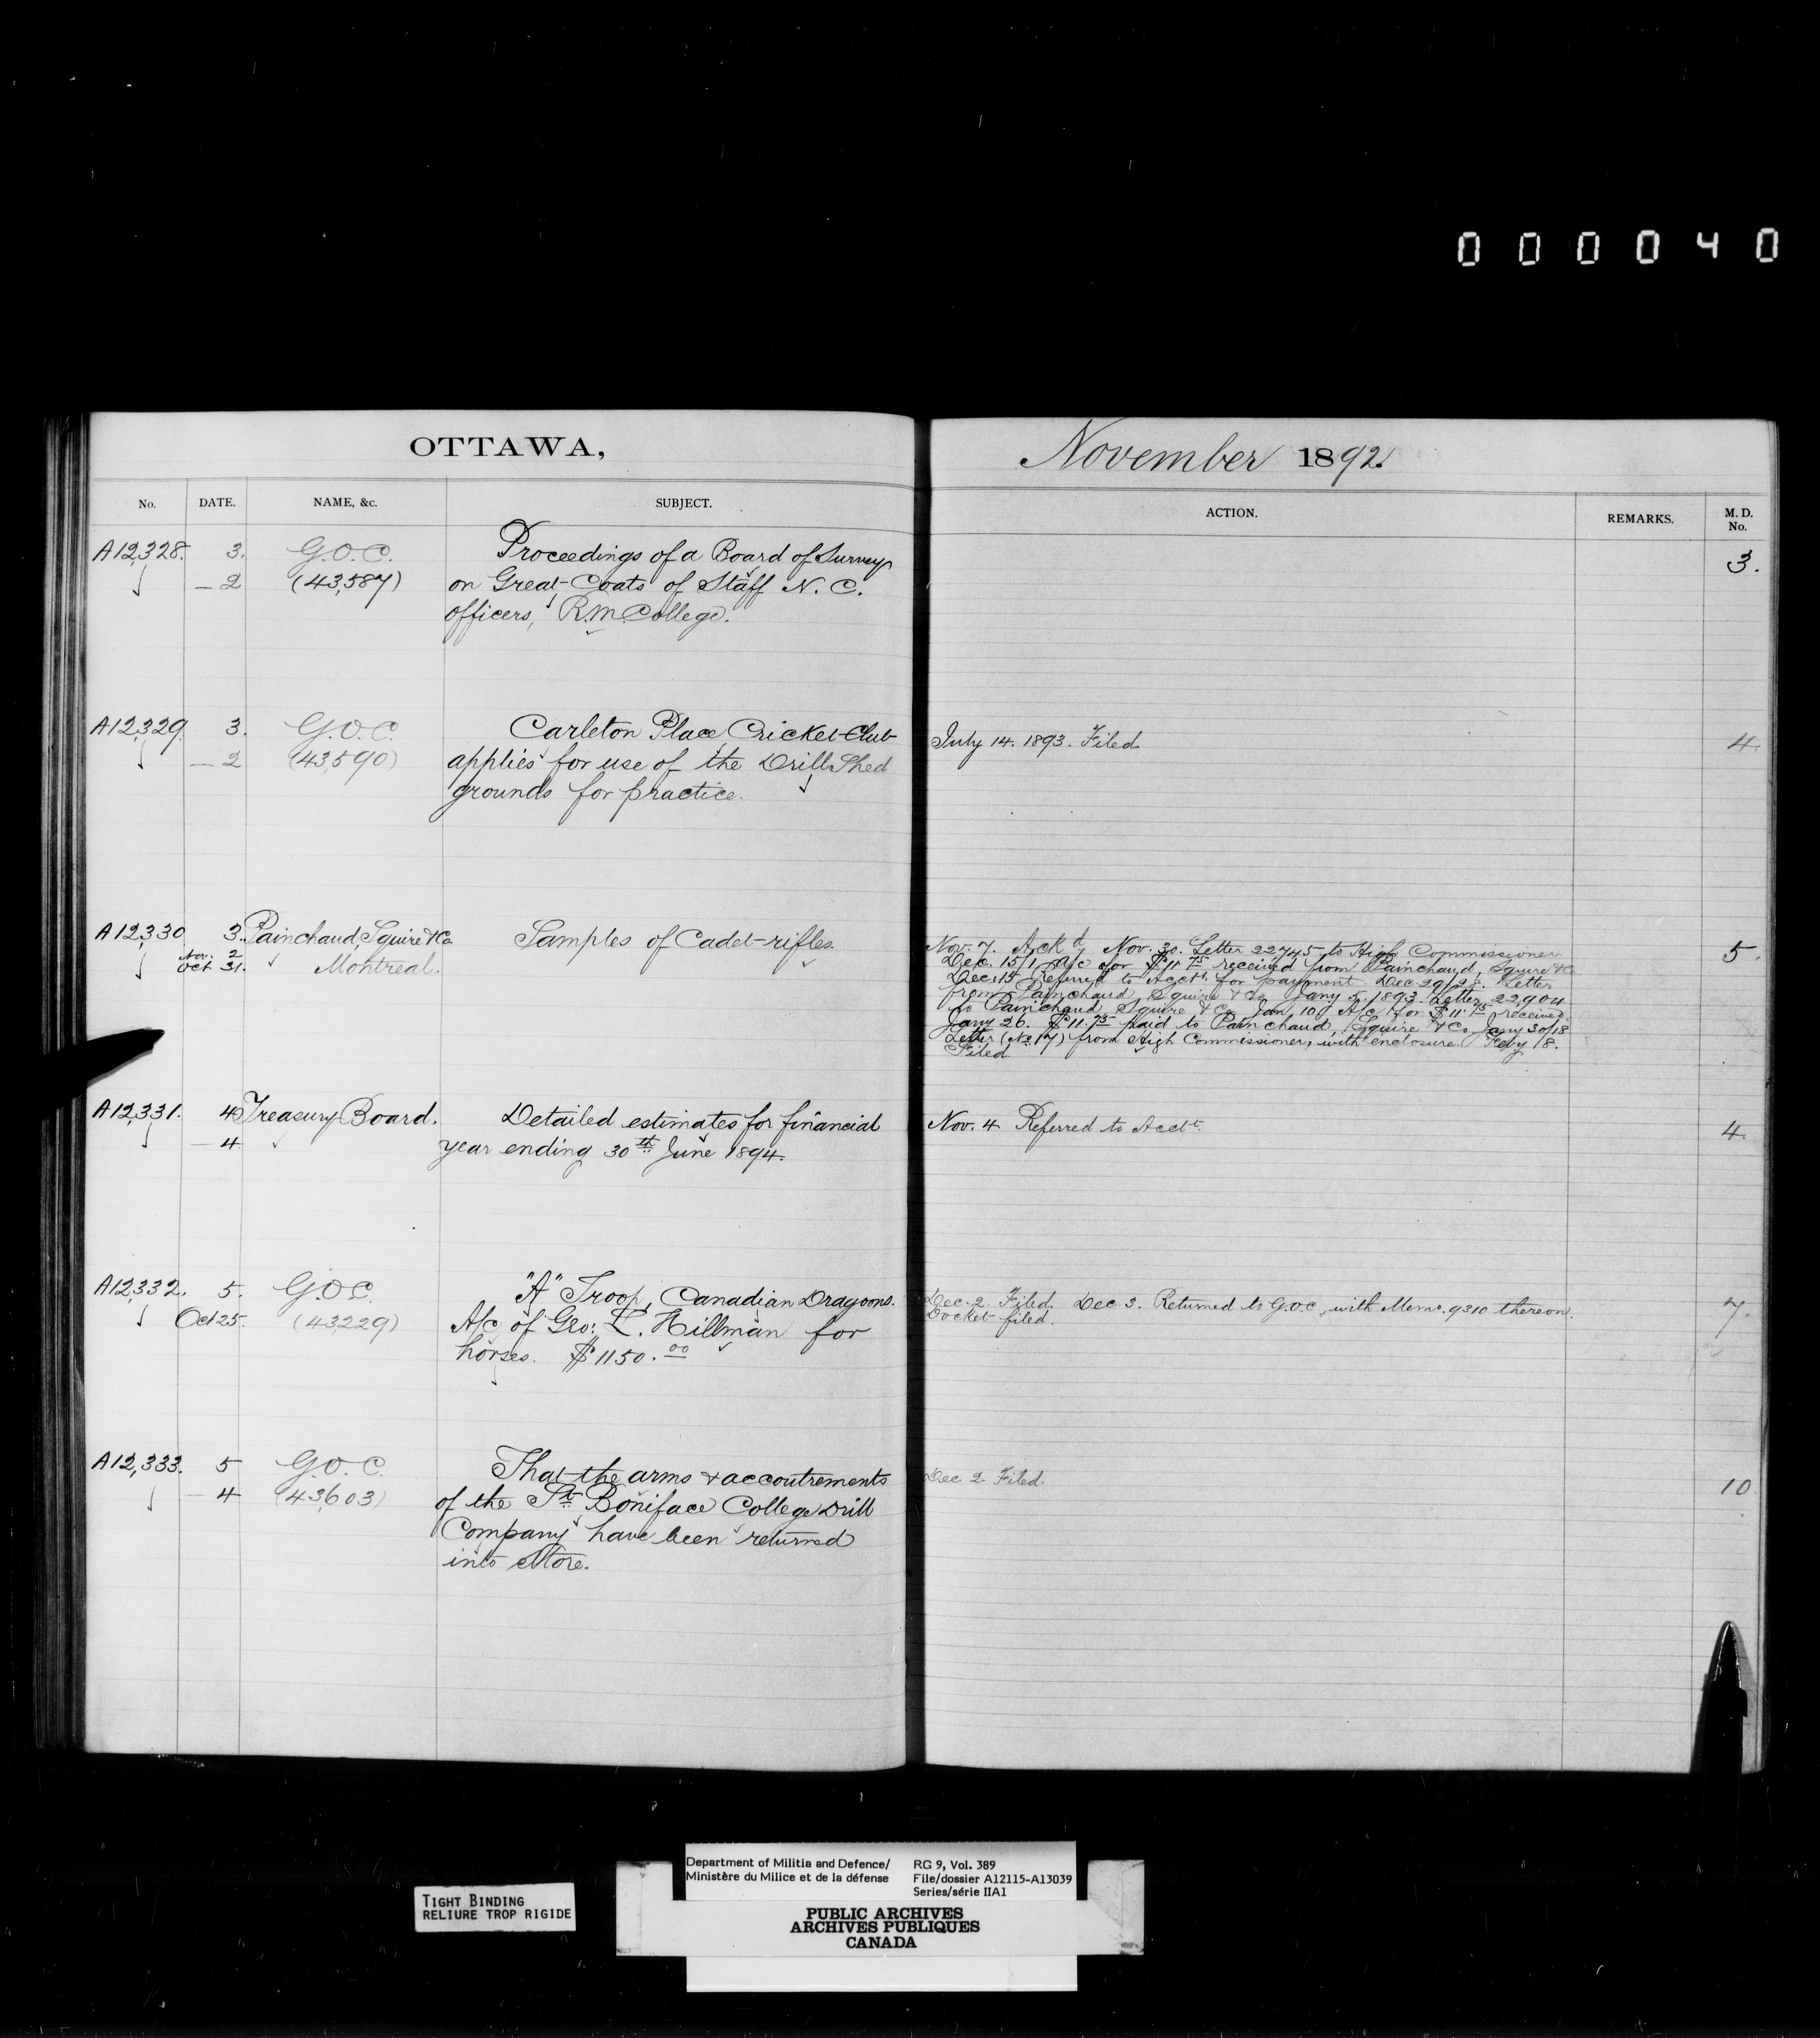 000040
OTTAWA,
November 1892.
No. DATE. NAME, &c. SUBJECT. ACTION. REMARKS. M. D. No.
A12,328. 3. G.O.C. Proceedings of a Board of Survey 3.
— 2 (43,587) on Great-Coats of Staff N. C.
officers, R.M. College.
A12,329 3. G.O.C. Carleton Place Cricket-Club July 14. 1893. Filed 4.
— 2 (43,590) applies for use of the Drill Shed
grounds for practice.
A12,330 3. Painchaud, Squire & Co. Samples of Cadet-rifles. 5.
Nov. 2
Oct 31. Montreal.
Nov. 7. Ack'd. Nov. 30. Letter 22745 to High Commissioner
Dec. 15/1 A/c for $11.75 received from Painchaud, Squire & Co
Dec. 15 Referred to Acctt. for payment Dec. 29/28. Letter
from Painchaud, Squire & Co. Jany 5. 1893. Letter 22,904
to Painchaud, Squire & Co. Jan. 10 A/c for $11.75 received.
Jany 26. $11.75 paid to Painchaud, Squire & Co. Jany 30/18
Letter (No 17) from High Commissioner, with enclosure. Feby 18.
Filed.
A12,331. 4 Treasury Board. Detailed estimates for financial Nov. 4 Referred to Acctt. 4.
— 4 year ending 30th June 1894.
A12,332. 5. G.O.C. "A" Troop, Canadian Dragoons. Dec. 2. Filed. Dec 3. Returned to G.O.C., with Memo. 9310 thereon. 7.
Oct 25. (43229) A/c of Geo: L. Hillman for Docket filed.
horses. $1150.00
A12,333. 5 G.O.C. That the arms & accoutrements Dec. 2 Filed. 10
— 4 (43,603) of the St. Boniface College Drill
Company have been returned
into Store.
TIGHT BINDING
RELIURE TROP RIGIDE
Department of Militia and Defence/
Ministère du Milice et de la défense
RG 9, Vol. 389
File/dossier A12115-A13039
Series/série IIA1
PUBLIC ARCHIVES
ARCHIVES PUBLIQUES
CANADA